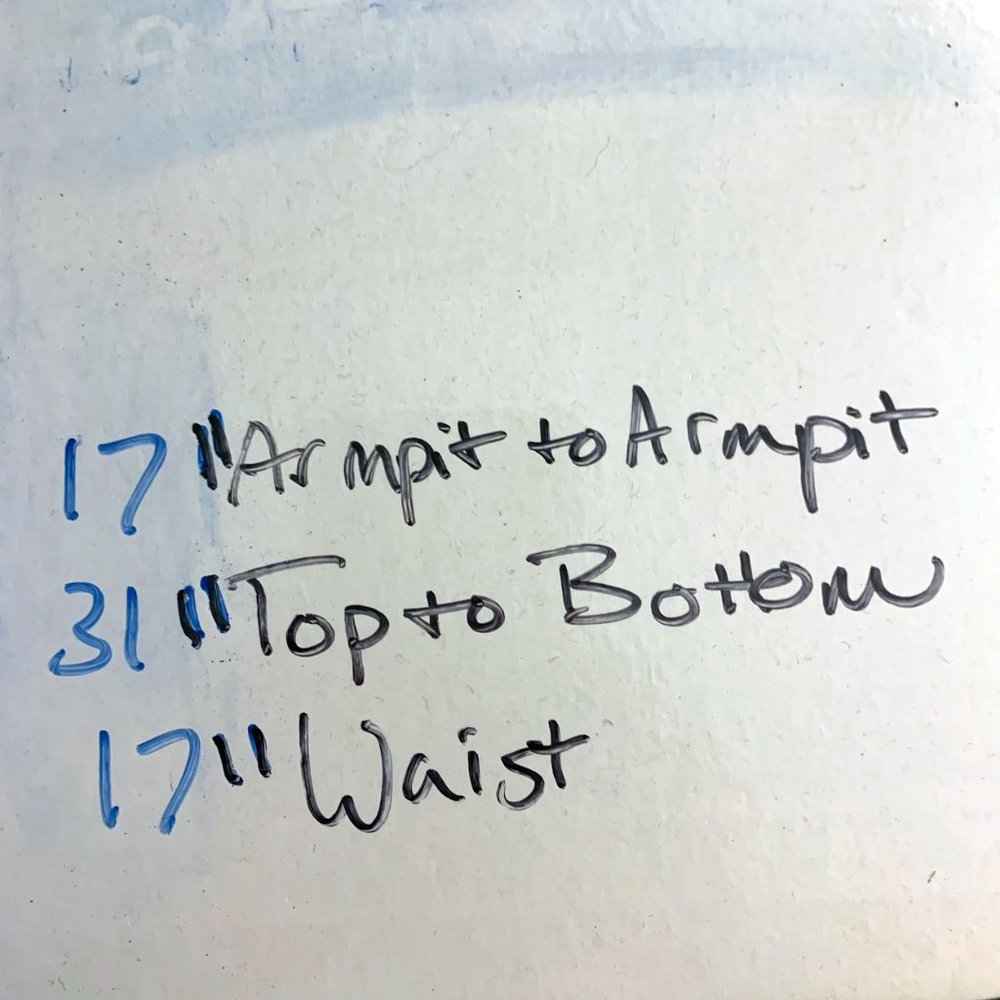 17" Armpit to Armpit
31" Top to Bottom
17" Waist